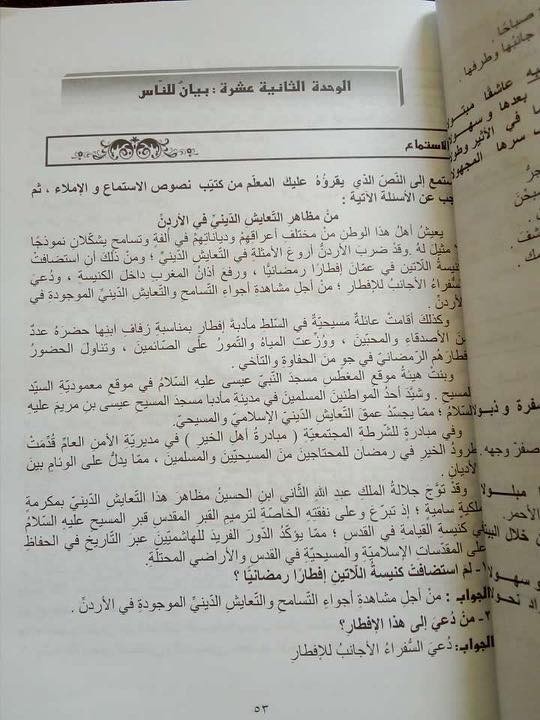 الوحدة الثانية عشرة : بيانٌ للنّاس
الاستماع
ستمع إلى النّصّ الذي يقرؤهُ عليك المعلّم من كتيّب نصوص الاستماع و الإملاء ، ثم
جب عن الأسئلة الآتية :
منْ مظاهر التّعايش الدّينيّ في الأردنّ
يعيشُ أهلُ هذا الوطنِ منْ مختلف أعراقهم ودياناتِهم في ألفة وتسامح يشكّلان نموذجًا
مثيلَ لهُ وقدْ ضربَ الأردنُّ أروعَ الأمثلةِ في التّعايش الدّينيّ ؛ ومنْ ذلك أن استضافتْ
كنيسة اللّاتين في عمّانَ إفطارًا رمضانيًّا ، ورفع أذانُ المغرب داخلَ الكنيسةِ ، ودُعيَ
السُّفراءُ الأجانبُ للإفطار ؛ منْ أجلِ مشاهدةِ أجواءِ التّسامح والتّعايش الدّينيِّ الموجودةِ في
لأردنِّ .
وكذلكَ أقامتْ عائلةٌ مسيحيّةٌ في السّلط مأدبة إفطار بمناسبةِ زفافِ ابنِها حضرَهُ عددٌ
منَ الأصدقاءِ والمحبّينَ ، ووزّعتِ المياهُ والتّمورُ على الصّائمينَ ، وتناولَ الحضورُ
إفطارَهُم الرّمضانيَّ في جو منَ الحفاوةِ والتآخي .
وبنتْ هيئةُ موقع المغطس مسجدَ النّبيّ عيسى عليه السّلامُ في موقعِ معموديّةِ السيّد
المسيح . وشيّدَ أحدُ المواطنينَ المسلمينَ في مدينة مادبا مسجدَ المسيح عيسى بن مريمَ عليه
السّلامُ ؛ ممّا يجسّدُ عمقَ التّعايش الدّينيّ الإسلاميّ والمسيحيّ.
وفي مبادرةٍ للشّرطة المجتمعيّة ( مبادرةُ أهلِ الخير ) في مديريّةِ الأمنِ العامِّ قُدّمتْ
طرودُ الخيرِ في رمضانَ للمحتاجينَ منَ المسيحيّينَ والمسلمين ، ممّا يدلُّ على الوئامِ بينَ
لأديانِ .
وقدْ توّجَ جلالةُ الملكِ عبدِ اللهِ الثّاني ابنِ الحسينِ مظاهرَ هذا التّعايشِ الدّينيِّ بمكرمةٍ
ملكيّةٍ ساميةٍ ؛ إذ تبرّعَ وعلى نفقتِهِ الخاصّةِ لترميمِ القبرِ المقدس قبرِ المسيح عليه السّلامُ
في كنيسةِ القيامةِ في القدس ؛ ممّا يؤكّدُ الدّورَ الفريدَ للهاشميّينَ عبرَ التّاريخِ في الحفاظِ
على المقدّساتِ الإسلاميّةِ والمسيحيّةِ في القدسِ والأراضي المحتلّةِ.
١- لم استضافتْ كنيسةُ اللّاتين إفطارًا رمضانيًّا ؟
الجوابُ : منْ أجلِ مشاهدةِ أجواءِ التّسامح والتّعايش الدّينيِّ الموجودةِ في الأردنّ .
٢- منْ دُعيَ إلى هذا الإفطارِ؟
الجوابُ: دُعيَ السُّفراءُ الأجانبُ للإفطارِ
٥٣
صباحًا .
جانبُها وطرفها .
عاشقا مبتو
بعدها و سهو
في الأثير وطو
سرها المجهو
صفرة و ذبو
صفرَ وجهه .
الأحمر.
من خلال البي
و سهو